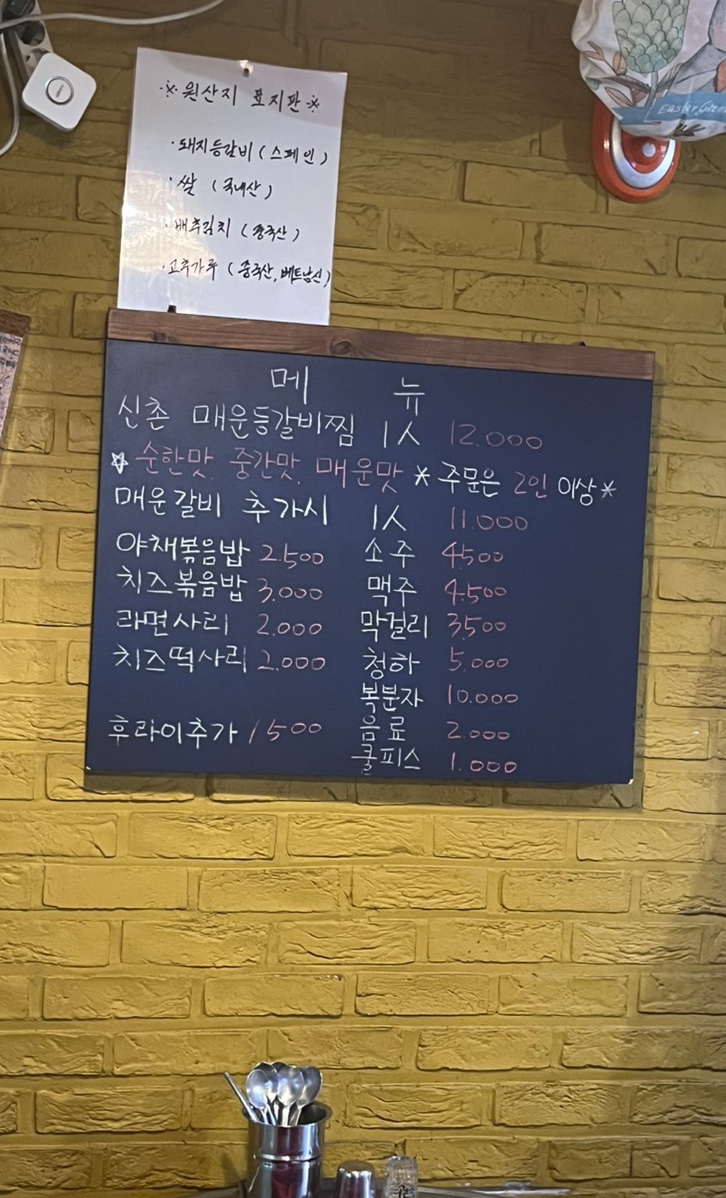 ※ 원산지 표지판 ※
· 돼지등갈비 (스페인)
· 쌀 (국내산)
· 배추김치 (중국산)
· 고추가루 (중국산, 베트남산)
메 뉴
신촌 매운등갈비찜 1人 12.000
순한맛. 중간맛. 매운맛 * 주문은 2인 이상 *
매운갈비 추가시 1人 11.000
야채볶음밥 2.500 소주 4500
치즈볶음밥 3.000 맥주 4.500
라면사리 2.000 막걸리 3500
치즈떡사리 2.000 청하 5.000
복분자 10.000
후라이추가 1500 음료 2.000
쿨피스 1.000